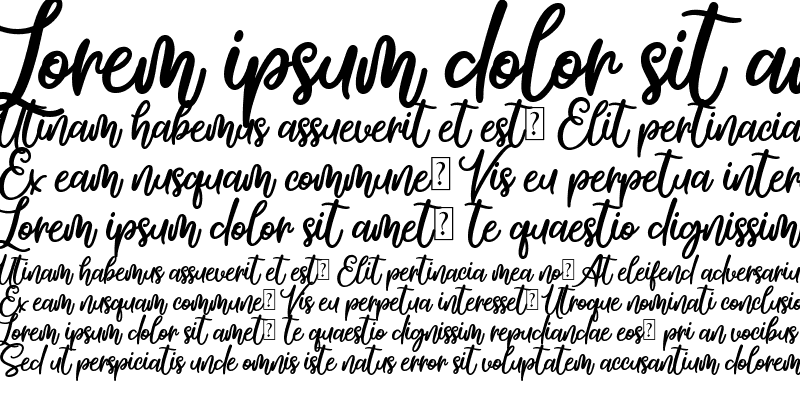 Lorem ipsum dolor sit am
Utinam habemus assueverit et est⍰ Elit pertinacia
Ex eam nusquam commune⍰ Vis eu perpetua inter
Lorem ipsum dolor sit amet⍰ te quaestio dignissim
Utinam habemus assueverit et est⍰ Elit pertinacia mea no⍰ At eleifend adversariu
Ex eam nusquam commune⍰ Vis eu perpetua interesset⍰ Utroque nominati conclusio
Lorem ipsum dolor sit amet⍰ te quaestio dignissim repudiandae eos⍰ pri an vocibus
Sed ut perspiciatis unde omnis iste natus error sit voluptatem accusantium dolorem